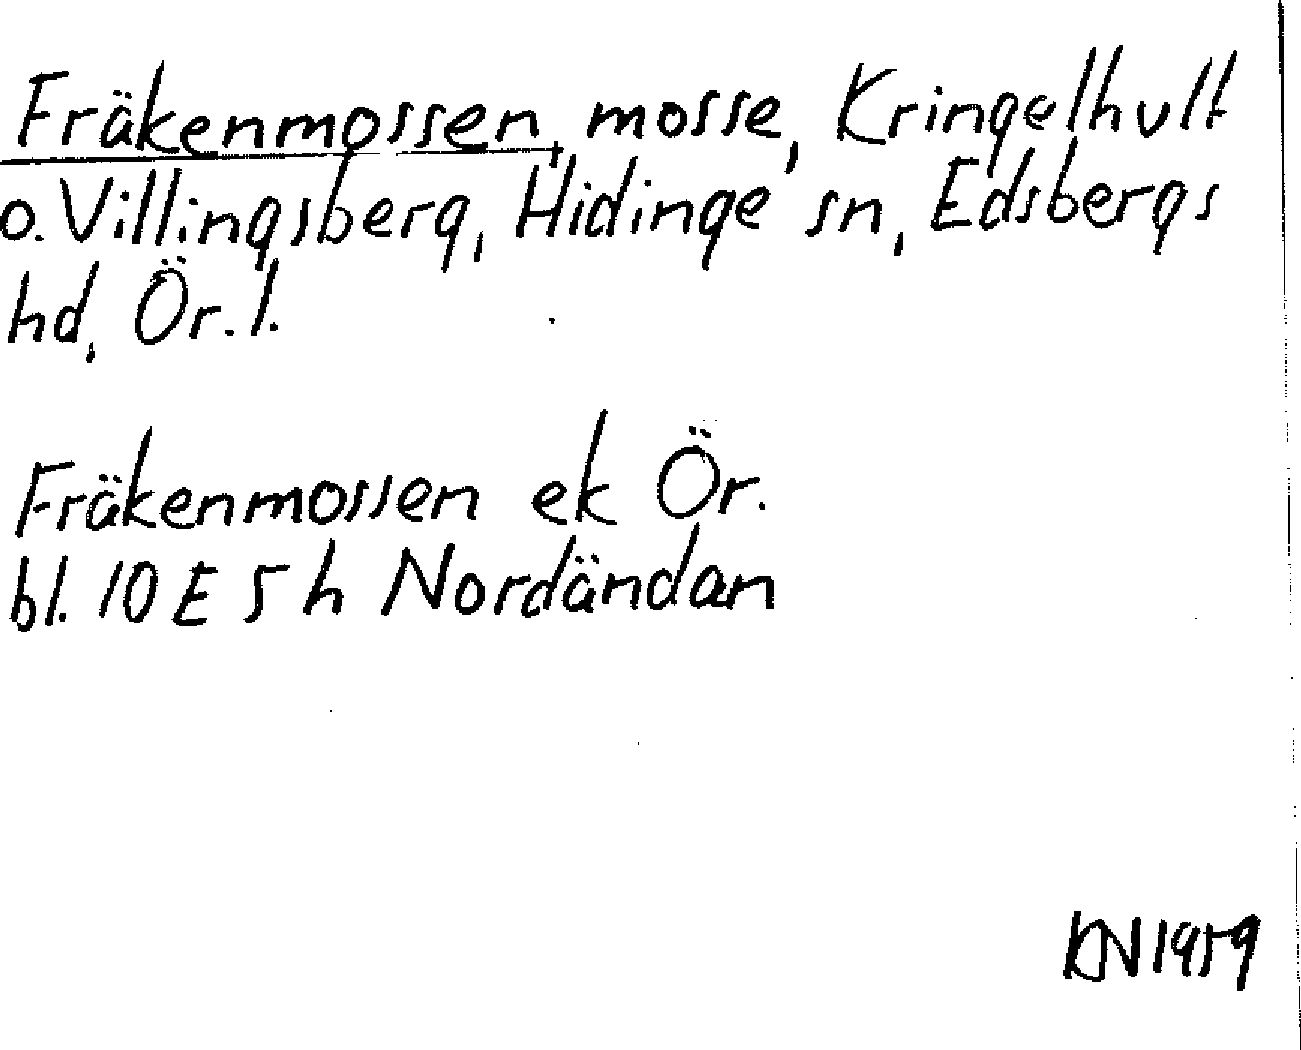 Fräkenmossen, mosse, Kringelhult
o. Villingsberg, Hidinge sn, Edsbergs
hd, Ör. l.
Fräkenmossen ek Ör.
bl. 10 E 5 h Nordändan
KN 1959